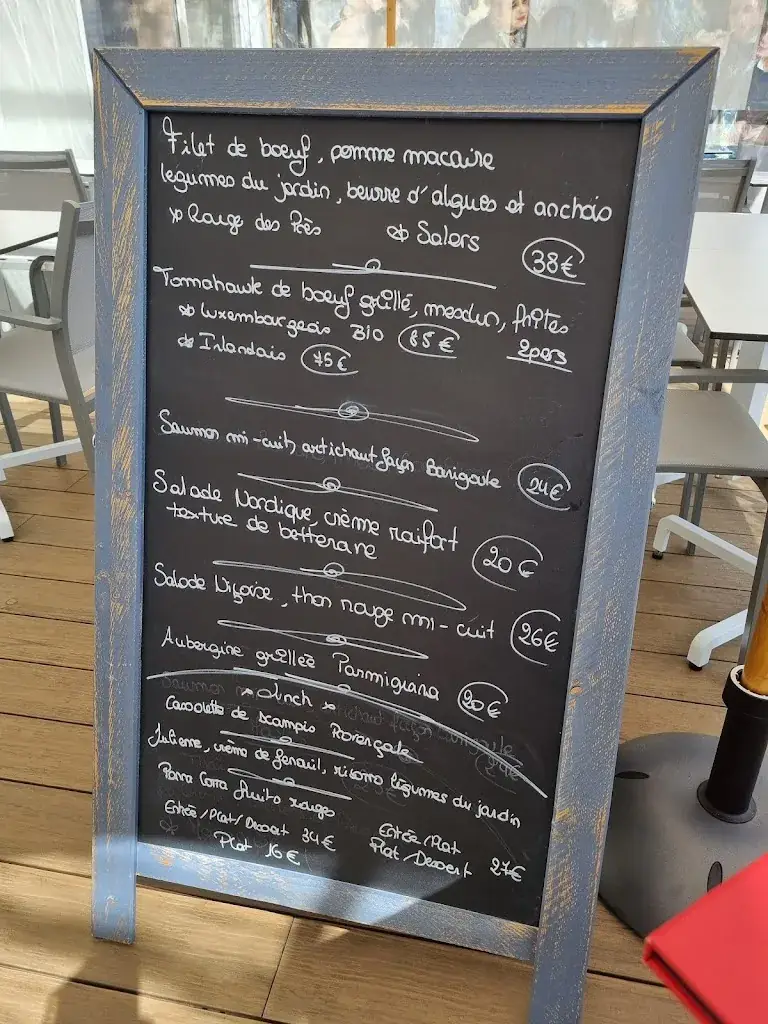 Filet de boeuf, pomme macaire
legumes du jardin, beurre d'algues et anchois
Rouge des Prés
Salers
38€
Tomahawk de boeuf grillé, mesclun, frites
Luxembourgeois BIO 85€
2pers
Irlandais 75€
Saumon mi-cuit, artichaut façon Barigoule 24€
Salade Nordique, crème raifort
texture de betterave 20€
Salade Niçoise, thon rouge mi-cuit 26€
Aubergine grillée Parmigiana 20€
Lunch
Cassolette de scampis Provençale
Julienne, crème de fenouil, risotto légumes du jardin
Panna Cotta fruits rouges
Entrée/Plat/Dessert 34€
Plat 16€
Entrée/Plat
Plat/Dessert 27€